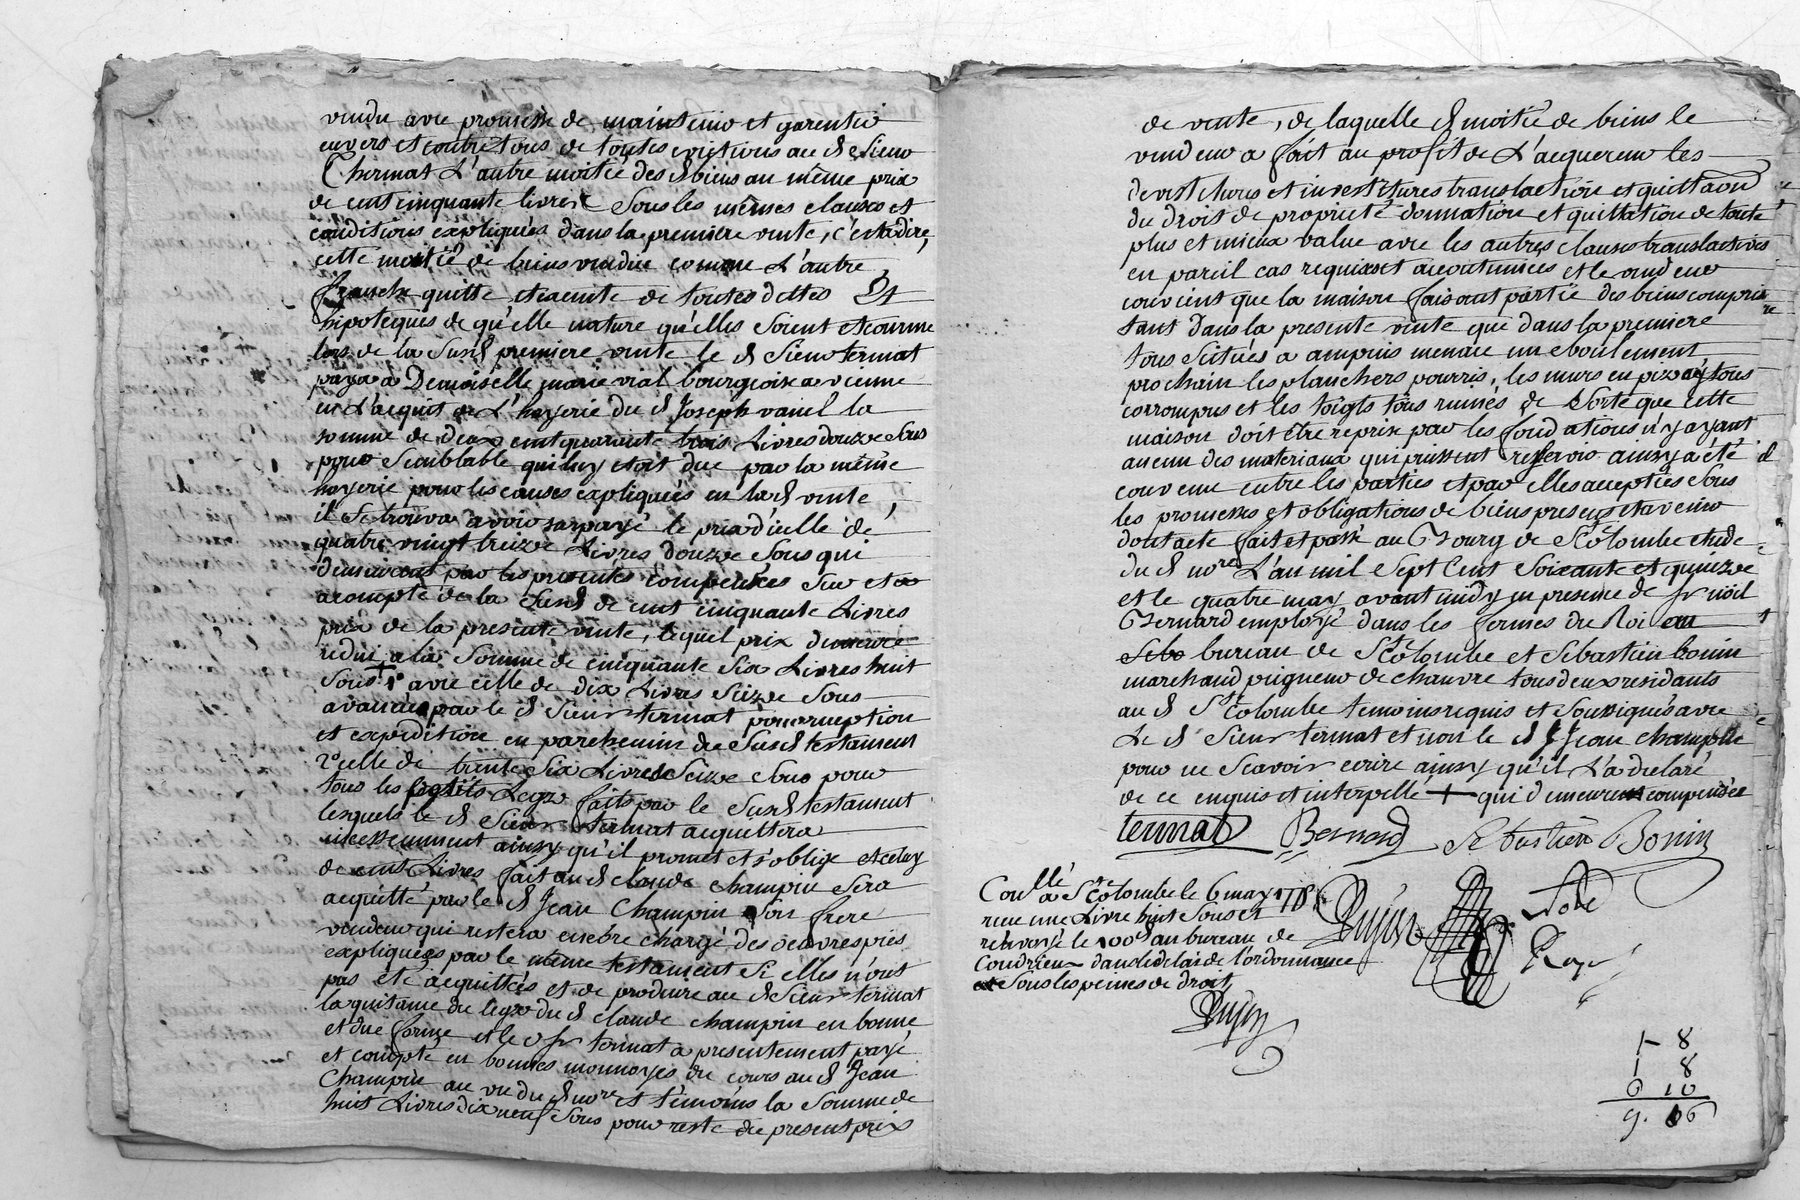 vendu avec promesse de maintenir et garentir
envers et contre tous de toutes evictions au d sieur
Thermat L'autre moitié des d biens au même prix
de cent cinquante livres sous les mêmes clauses et
conditions expliquées dans la premiere vente, c'est a dire,
cette moitié de biens vendue comme L'autre
franche quitte et exempte de toutes dettes Et
hipoteques de qu'elle nature qu'elles soient et comme
lors de la susd premiere vente le d sieur termat
paya a Demoiselle marie vial bourgeoise a vienne
en L'acquit de L'hoyerie du d Joseph vainel la
somme de deux cent quarante trois Livres douze sous
pour semblable qui luy etoit due par la même
hoyerie pour les causes expliquées en lad vente,
il se trouva avoir surpayé le prix d'icelle de
quatre vingt treize Livres douze sous qui
demeurent par les presentes compensées sur et a
acompte de la susd de cent cinquante Livres
prix de la presente vente, lequel prix demeure
reduit a la somme de cinquante six Livres huit
sous 1° avec celle de dix Livres seize sous
avancée par le d sieur termat pour reception
et expedition en parchemin du susd testament
2° celle de trente six Livres seize sous pour
tous les legats faits par le susd testament
lesquels le d sieur termat acquittera
incessemment ainsy qu'il promet et s'oblige et celuy
de cent Livres fait au d claude champin sera
acquitté par le d Jean Champin son frere
vendeur qui restera encore chargé des oeuvres pies
expliquées par le même testament si elles n'ont
pas été acquittées et de produire au d sieur termat
la quitance du legs du d claude champin en bonne
et due forme et le d sr termat a presentement payé
et compté en bonnes monnoyes du cours au d Jean
Champin au vu du d nore et témoins la somme de
huit Livres dix neuf sous pour reste du present prix
de vente, de laquelle d moitié de biens le
vendeur a fait au profit de L'acquereur les
devestitures et investitures translaction et quittaon
du droit de proprieté donnation et quittation de toute
plus et mieux value avec les autres clauses translactives
en pareil cas requises et accoutumées et le vendeur
convient que la maison faisant partie des biens compris
tant dans la presente vente que dans la premiere
tous scitués a ampuis menace un eboulement
prochain les planchers pourris, les murs en pizay tous
corrompus et les toigts tous ruinés de sorte que cette
maison doit être reprise par les fondations n'y ayant
aucun des materiaux qui puissent reservir ainsy a été
convenu entre les parties et par elles acceptées sous
les promesses et obligations de biens presens et avenir
dont acte fait et passé au Bourg de Ste Colombe etude
du d nore L'an mil sept cent soixante et quinze
et le quatre may avant midy en presence de sr noël
Bernard employé dans les fermes du Roi au
bureau de Ste Colombe et Sebastien bonin
marchand peigneur de chanvre tous deux residants
au d Ste Colombe temoins requis et soussignés avec
Le d sieur termat et non le d Jean champin
pour ne sçavoir ecrire ainsy qu'il L'a declaré
de ce enquis et interpellé + qui demeurent compensée
termat Bernard Sebastien Bonin
Conllé a Ste Colombe le 6 may 178
recu une Livre huit sous et
renvoyé le 100e au bureau de
Condrieu dans le delai de l'ordonnance
sous les peines de droit
1- 8
1 8
6 10
9. 06